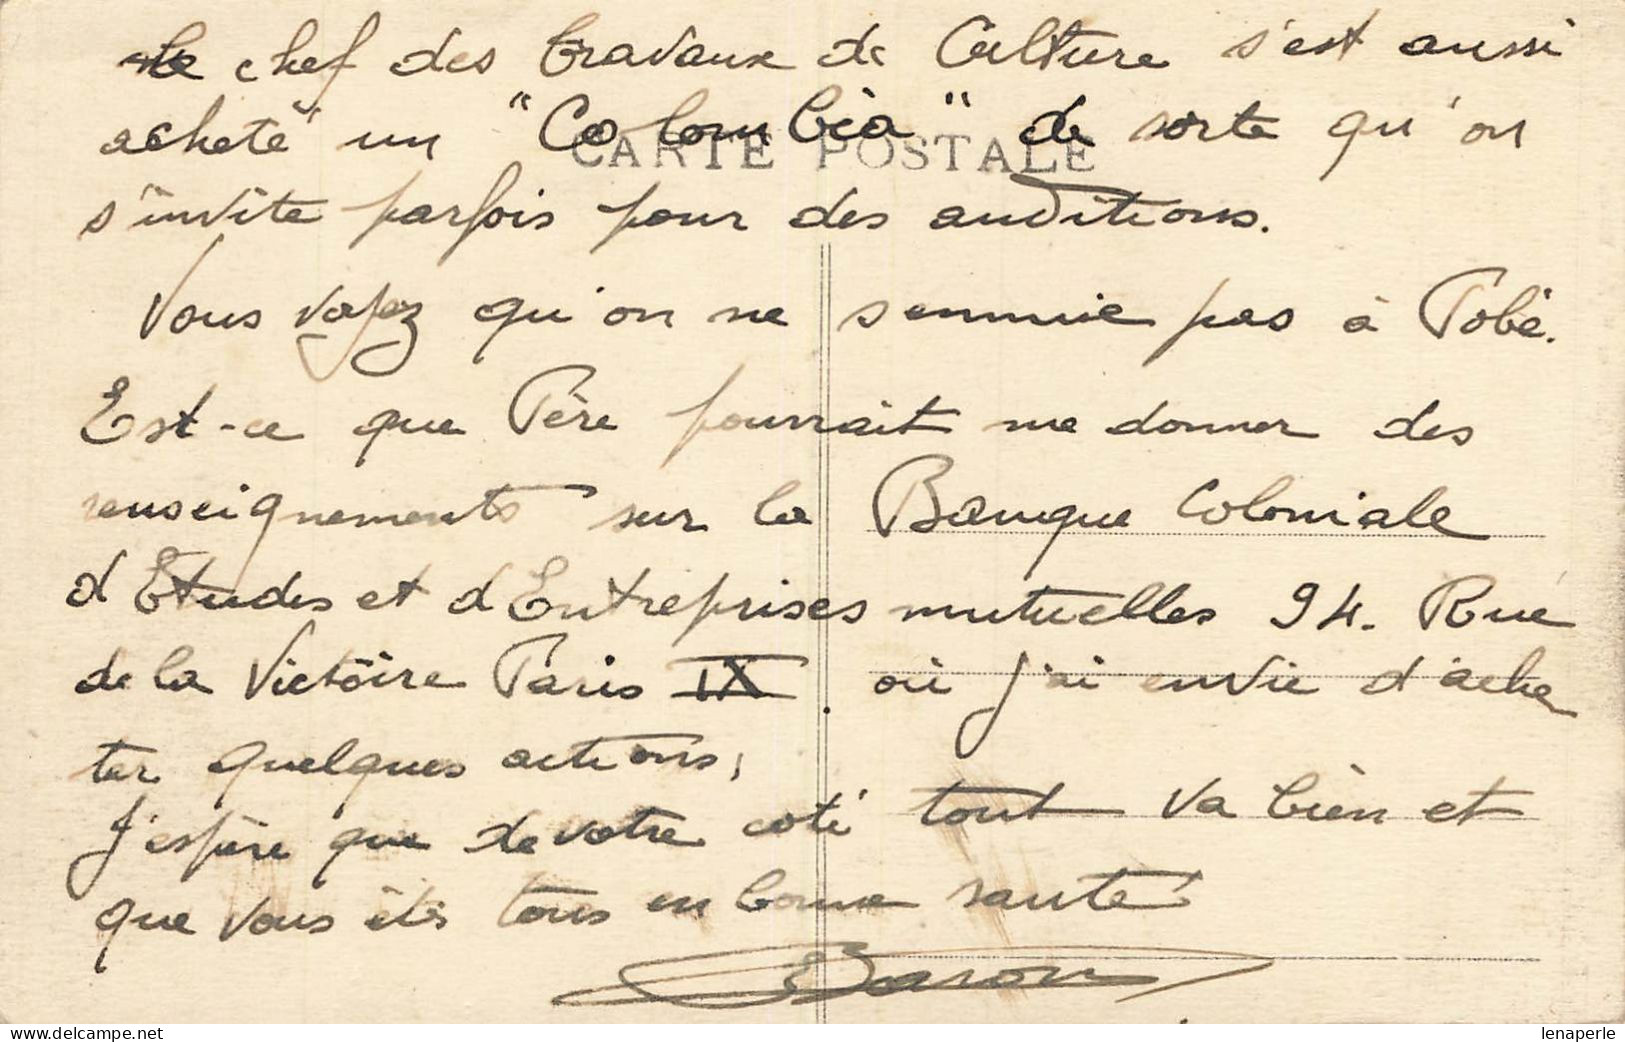 Le chef des travaux de Culture s'est aussi
acheté un "Colombia" de sorte qu'on
CARTE POSTALE
s'invite parfois pour des auditions.
Vous voyez qu'on ne sennuie pas à Tobé.
Est-ce que Père pourrait me donner des
renseignements sur la Banque Coloniale
d'Etudes et d'Entreprises mutuelles 94. Rue
de la Victoire Paris IX où j'ai envie d'ache
ter quelques actions,
J'espère que de votre coté tout va bien et
que vous êtes tous en bonne santé!
Baron
lenaperle